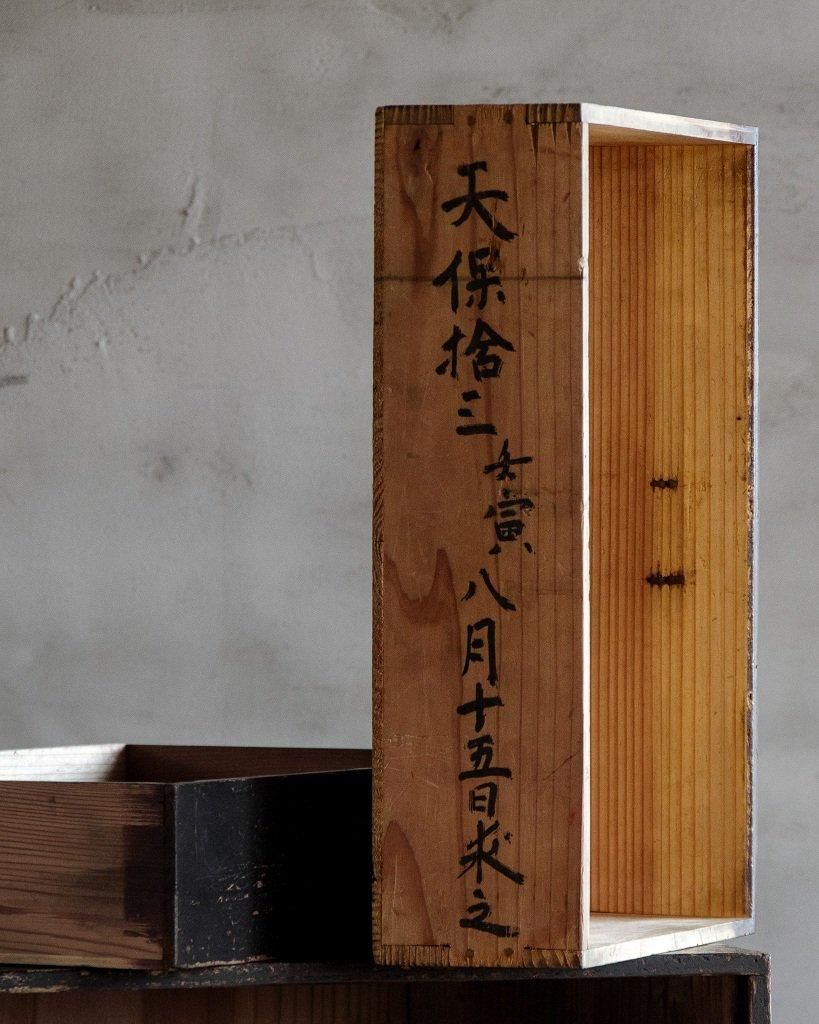 天保捨三壬寅八月十五日求之